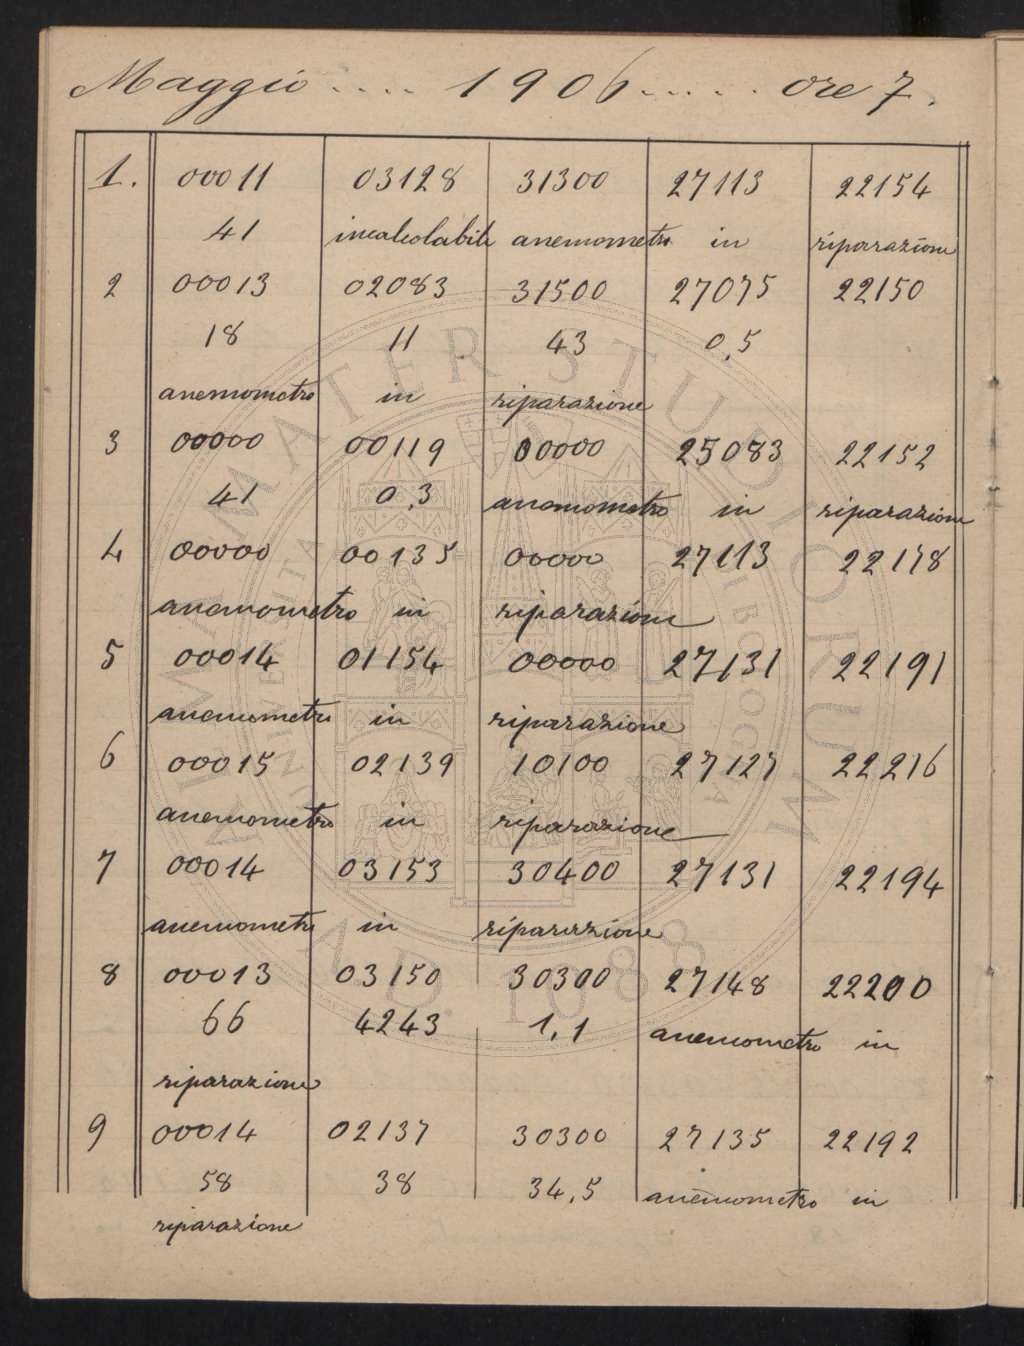 Maggio .... 1906 ..... ore 7.
1. 00011 03128 31300 27113 22154
41 incalcolabile anemometro in riparazione
2 00013 02083 31500 27075 22150
18 11 43 0,5
anemometro in riparazione
3 00000 00119 00000 25083 22152
41 0,3 anemometro in riparazione
4 00000 00135 00000 27113 22178
anemometro in riparazione
5 00014 01154 00000 27131 22191
anemometro in riparazione
6 00015 02139 10100 27127 22216
anemometro in riparazione
7 00014 03153 30400 27131 22194
anemometro in riparazione
8 00013 03150 30300 27148 22200
66 4243 1,1 anemometro in
riparazione
9 00014 02137 30300 27135 22192
58 38 34,5 anemometro in
riparazione
ALMA MATER STUDIORUM
A.D. 1088